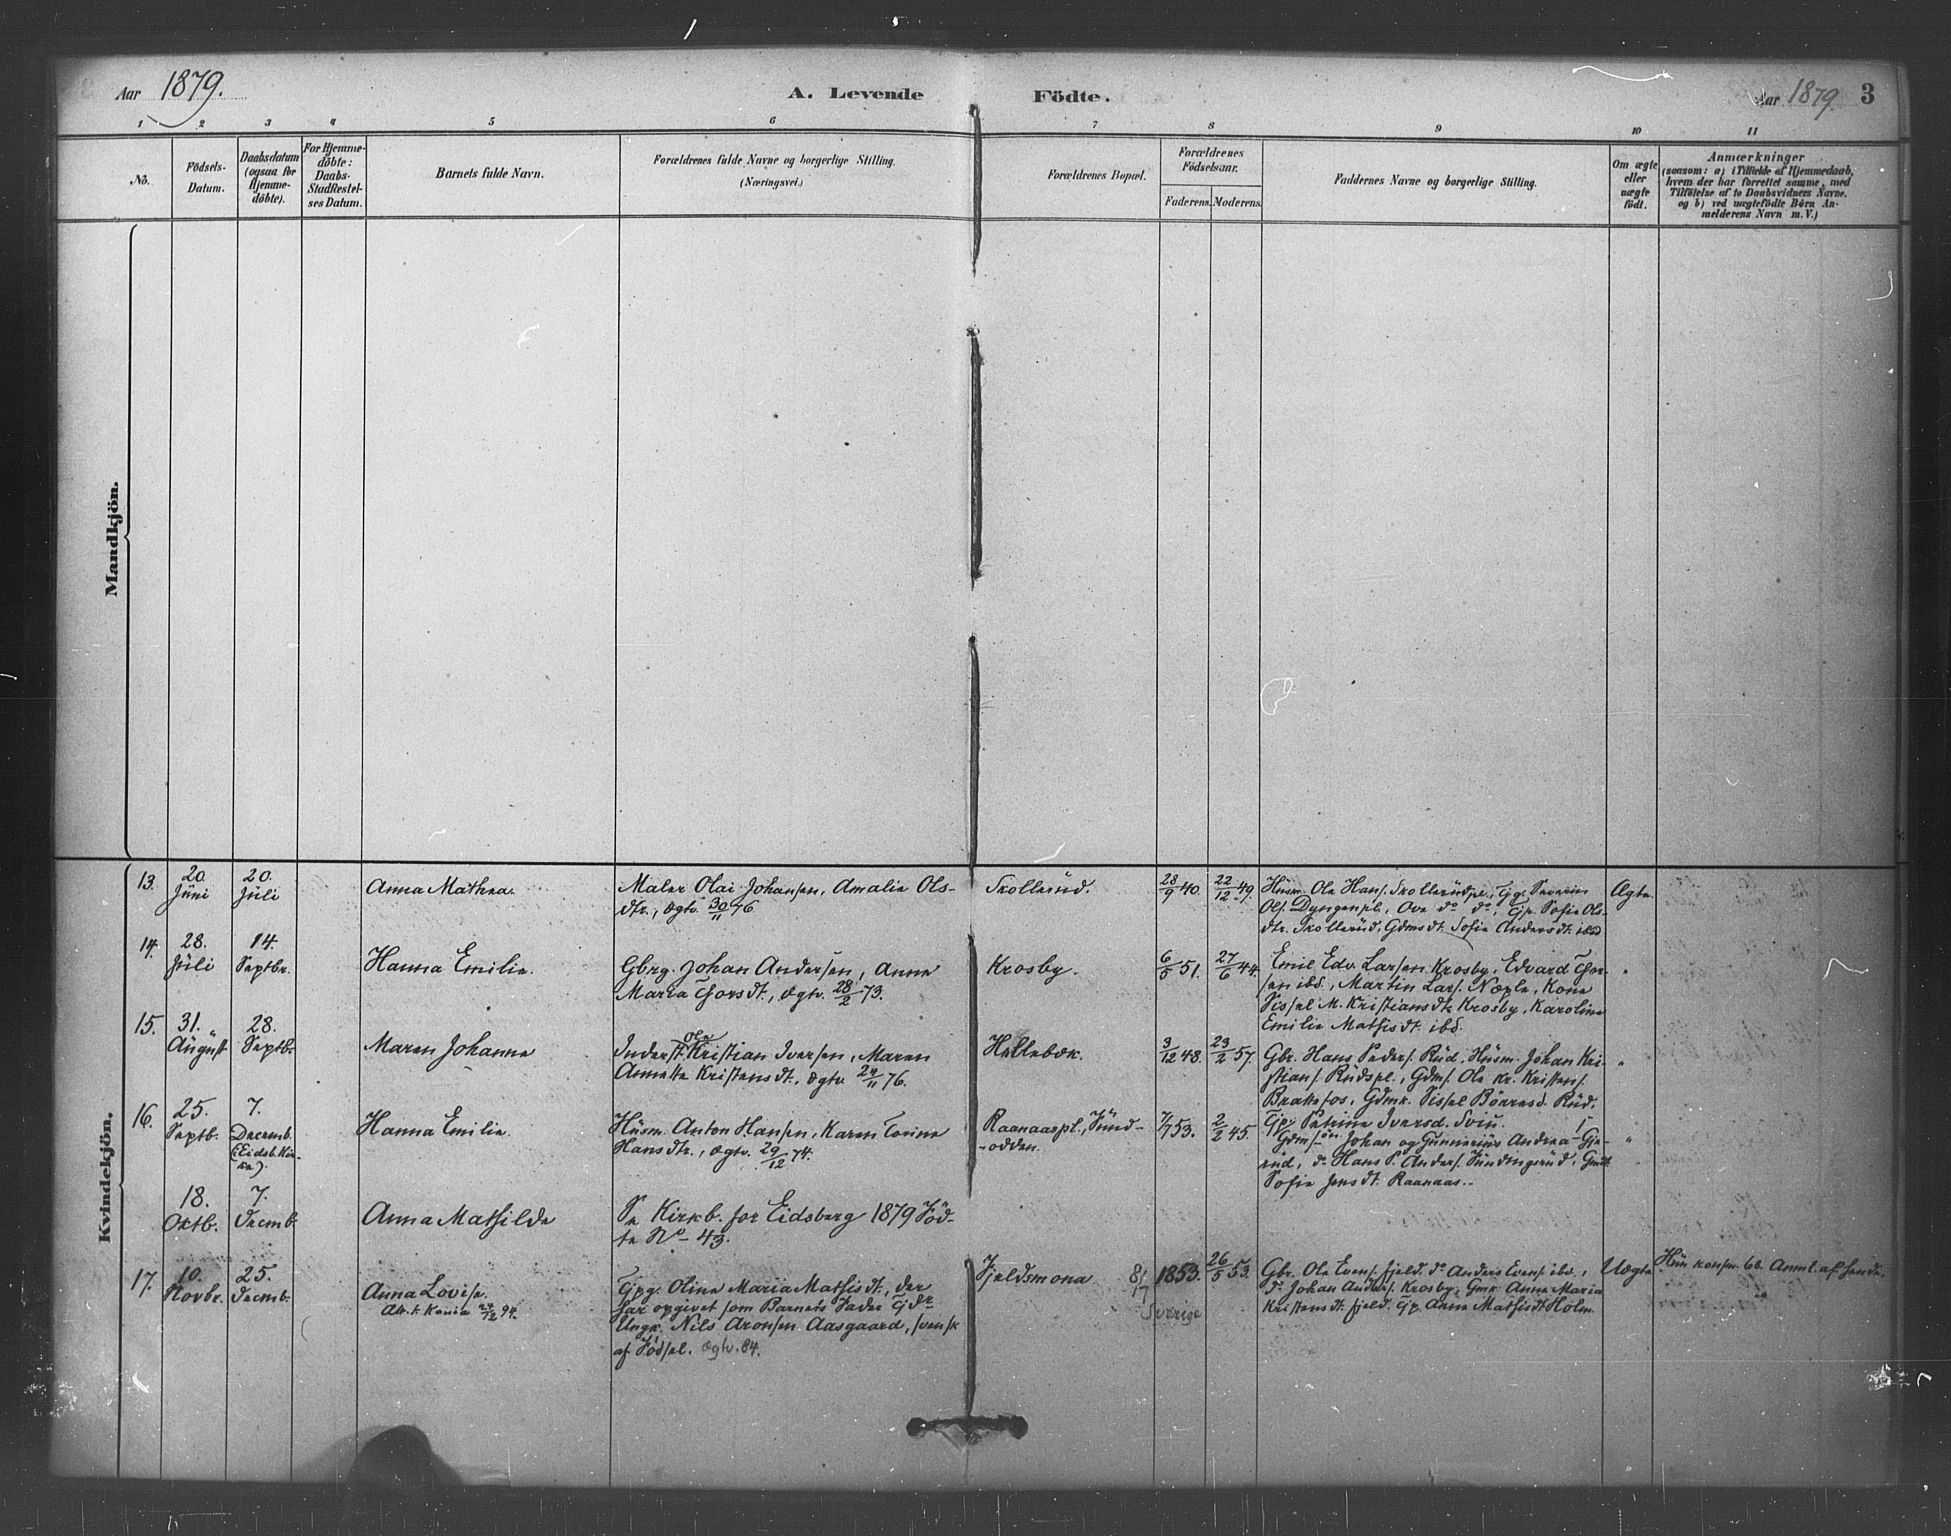 Aar 1879.
A. Levende Födte.
Aar 1879. 3
1 2 3 4 5 6 7 8 9 10 11
No.
Födsels-
Datum.
Daabsdatum
(ogsaa for
Hjemme-
döbte).
For Hjemme-
döbte:
Daabs-
Stadfestel-
ses Datum.
Barnets fulde Navn.
Forældrenes fulde Navne og borgerlige Stilling.
(Næringsvei.)
Forældrenes Bopæl.
Forældrenes
Födselsaar.
Faderens. Moderens.
Faddernes Navne og borgerlige Stilling.
Om ægte
eller
uægte
födt.
Anmærkninger
(saasom: a) i Tilfælde af Hjemmedaab,
hvem der har forrettet samme, med
Tilföielse af to Daabsvidners Navne.
og b) ved uægtefödte Børn An-
melderens Navn m. V.)
Mandkjön.
Kvindekjön.
13.
20.
Juni
20.
Juli
Anna Mathea.
Maler Olai Johansen, Amalie Ols-
dtr., ægtv. 30/11 76.
Skollerud.
28/9 40.
22/12 49.
Husm. Ole Hans. Skollerudpl., Tjg. Severin
Ols. Dyngenpl., Ove do do, Tjp. Sofie Ols-
dtr. Skollerud, Gdmsdt. Sofie Andersdt. ibd
Ægte.
14.
28.
Juli
14.
Septbr.
Hanna Emilie.
Gbrg. Johan Andersen, Anne
Maria Thorsdt., ægtv. 28/2 73.
Krosby.
6/5 51.
27/6 44.
Emil Edv. Larsen Krosby, Edvard Thor-
sen ibd., Martin Lars. Næple, Kone
Sissel M. Kristiansdt. Krosby, Karoline
Emilie Mathisdt. ibd.
"
15.
31. "
August
28.
Septb.
Maren Johanne
Inderst. Ole Kristian Iversen, Maren
Annette Kristensdt., ægtv. 24/11 76.
Hellebæk.
3/12 48.
23/2 57.
Gbr. Hans Peders. Rud, Husm. Johan Kri-
stians. Rudspl., Gdms. Ole Kr. Kristens.
Brakefos, Gdmk. Sissel Børresd. Rud,
Tjp. Petrine Iversd. Sviu.
"
16.
25.
Septb.
7.
Decemb.
(Eidsb. Kir-
ke).
Hanna Emilie.
Husm. Anton Hansen, Karen Torine
Hansdtr., ægtv. 29/12 74.
Raanaaspl., Sund-
-odden.
7/7 53.
2/2 45.
Gdms-øn. Johan og Gunnerius Andrea-Gje-
rud, do Hans P. Anders. Sundingsrud, Gmdt.
Sofie Jensdt. Raanaas.
"
18.
Oktb.
7.
Decmb.
Anna Mathilde
Se Kirkb. for Eidsberg 1879 Föd-
te No 43.
17.
10.
Novbr.
25.
Decmb.
Anna Lovise.
Tjpg. Oline Maria Mathisdt., der
har opgivet som Barnets Fader Tjdr.
Ungk. Nils Aronsen Aasgaard, svensk
af Födsel. Ægtv. 84.
Fjeldsmona.
8/7 1853.
Sverige
26/5 53.
Gbr. Ole Evens. Fjeld, do Anders Evens. ibd.,
do Johan Anders. Krosby, Gmk. Anne Maria
Kristensdt. Fjeld, Tjp. Anne Mathisdt. Holm.
Uægte